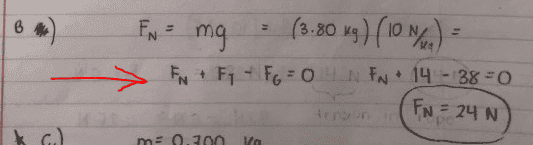 B a) F_N = mg = (3.80 kg) (10 N/kg) =
F_N + F_T - F_G = 0 F_N + 14 - 38 = 0
F_N = 24 N
C.) m = 0.700 kg